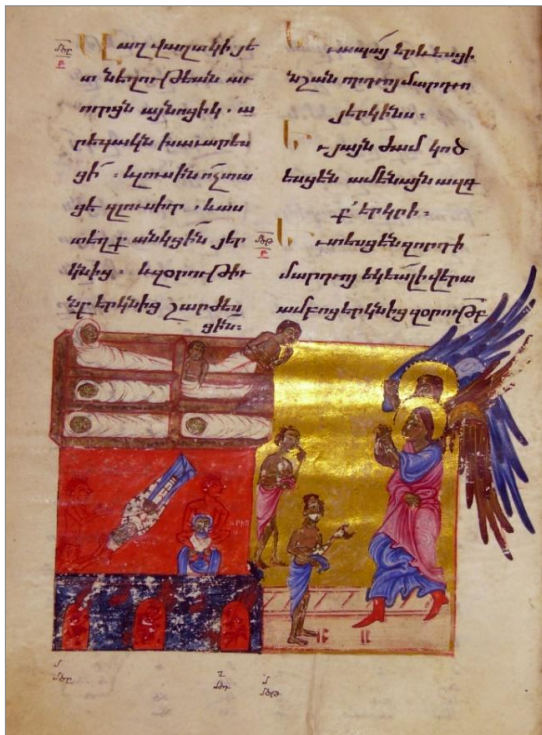 Վաղվաղակի յե
տ նեղութեան աւ
ուրցն այնոցիկ . ա
րեգակն խաւարես
ցի : և լուսին ոչ տա
ցէ զլուսիւր . և աս
տեղք անկցին յեր
կնից . և զօրութիւ
նք երկնից շարժես
ցին :
Եւ ապայ երևեսցի
նշան որդոյ մարդոյ
յերկինս :
Եւ յայն ժամ կոծ
եսցեն ամենայն ազգ
ք երկրի :
Եւ տեսցեն զորդի
մարդոյ եկեալ ի վերա
ամբոց երկնից զօրութբ